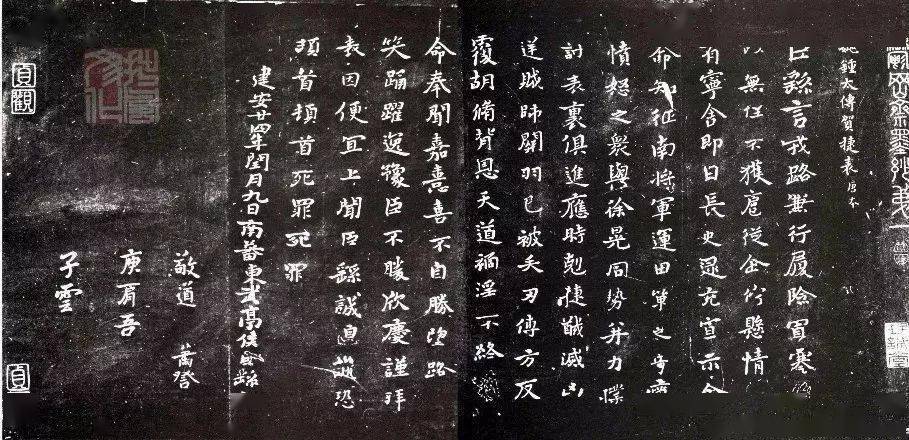 鬱岡齋墨妙卷一
魏鍾太傅賀捷表唐本
臣繇言戎路兼行履險冒寒
以無任不獲扈從企佇懸情
有寧舍即日長史逮充宣示令
命知征南將軍運田單之奇厲
憤怒之衆與徐晃同勢并力撲
討表裏俱進應時剋捷馘滅凶
逆賊帥關羽已被矢刃傅方反
覆胡脩背恩天道禍淫不終
命奉聞嘉憙喜不自勝望路
笑踊躍逸豫臣不勝欣慶謹拜
表因便宜上聞臣繇誠惶誠恐
頓首頓首死罪死罪
建安廿四年閏月九日南蕃東武亭侯臣繇
敬道
庾肩吾
子雲
貞觀
貞